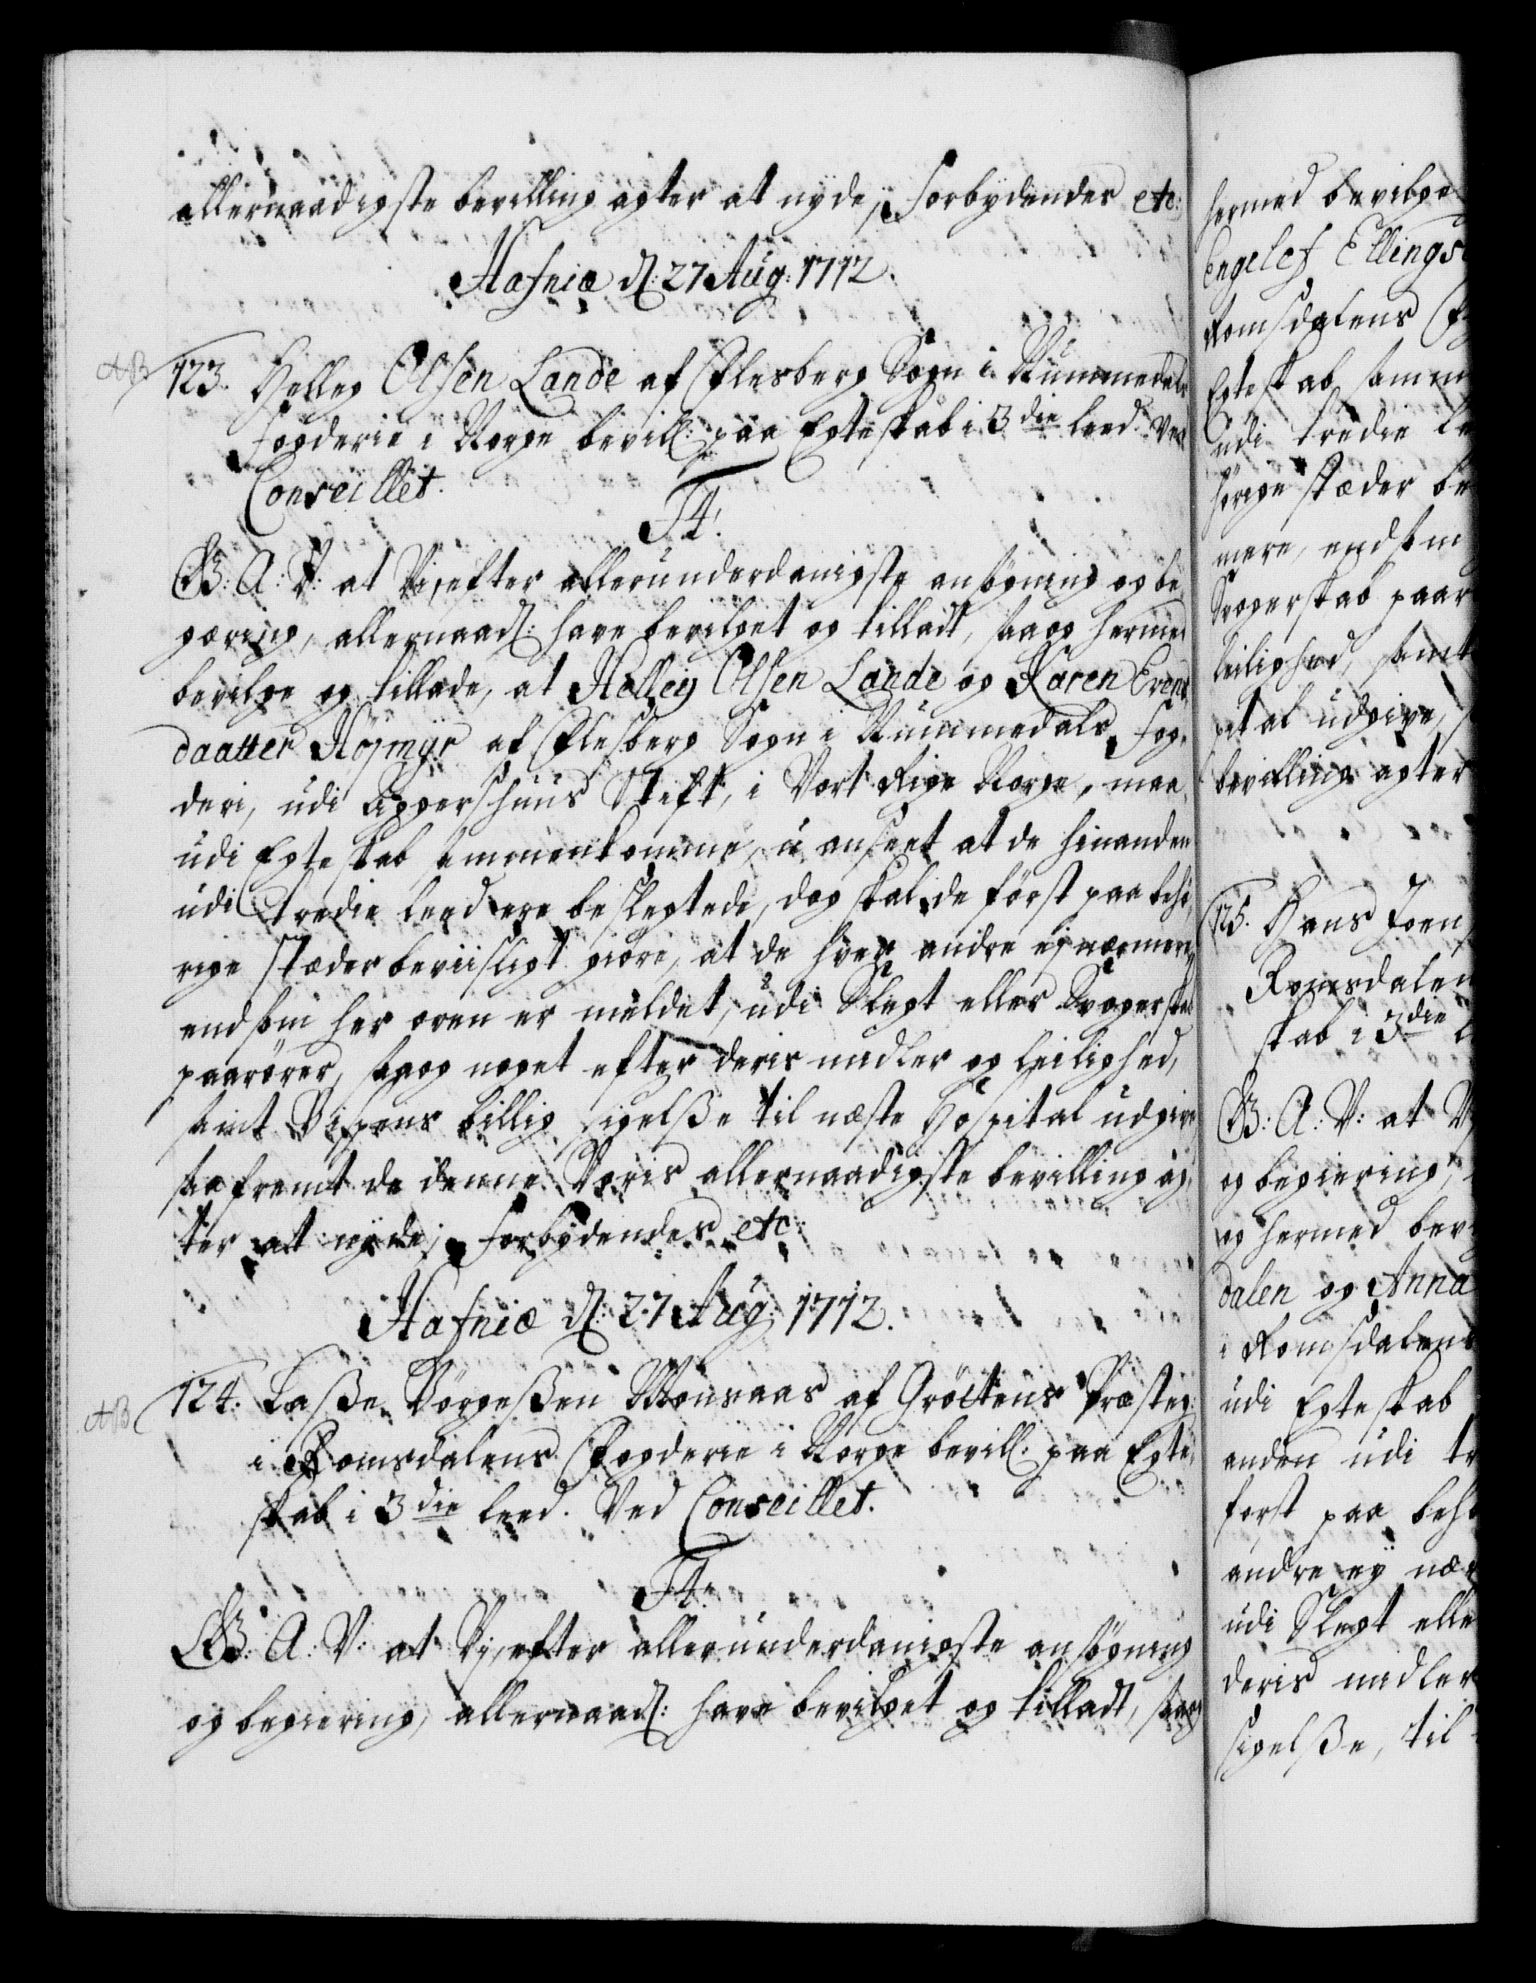 allernaadigste bevilling agter at nyde, Forbydendes etc:
Hafniæ d: 27 Aug: 1712.
AB
123. Helleg Olsen Lande af Flesberg Sogn i Nummedals
Fogderie i Norge bevill: paa Egteskab i 3die leed. Ved
Conseillet.
F4.
G.B: A: V: at Vi, efter allerunderdanigste ansøgning og be-
gæring, allernaad: have bevilget og tilladt, saa og hermed
bevilge og tillade, at Helleg Olsen Lande og Karen Evens
daatter Høymyr af Flesberg Sogn i Nummedals Fog-
deri, udi Aggershuus Stift, i Vort Rige Norge, maa
udi Egteskab sammenkomme, uanseet at de hinanden
udi tredie leed ere beslegtede, dog skal de først paa behø-
rige stæder beviisligt giøre, at de hver andre ej nærmere,
end som her oven er meldet, udi Slegt eller Svogerskab
paarører, saa og noget efter deris midler og leilighed,
samt Bispens billig sigelsse til næste Hospital udgive
saafremt de denne Voris allernaadigste bevilling ag-
ter at nyde; Forbydendes etc:
Hafniæ d: 27 Aug: 1712.
AB
124. Lasse Børgessen Monsaas af Gröttens Præsteg:
i Romsdalens Fogderie i Norge bevill: paa Egte-
skab i 3die leed. Ved Conseillet.
F4.
G.B: A: V: at Vi, efter allerunderdanigste ansøgning
og begiering, allernaad: have bevilget og tilladt, saa og
hermed bevilge
Engelef Ellings
Romsdalens
Egteskab samm
udi tredie le
hørige stæder be
mere, end som
Svogerskab paar
leilighed, samt
pital udgive, s
bevilling agter
125. Hans Joen
Romsdalen
skab i 3die l
G.B: A: V: at V
og begiering,
og hermed bev
dalen og Anna
i Romsdalens
udi Egteskab
anden udi tr
først paa beh
andre ey næ
udi Slegt elle
deris midler
sigelsse, til